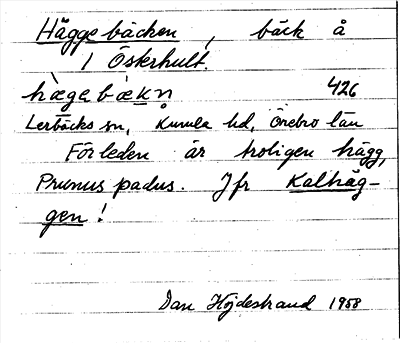 Häggebäcken, bäck å
1 Österhult.
hægebækn 426
Lerbäcks sn, Kumla hd, Örebro län
Förleden är troligen hägg,
Prunus padus. Jfr Kalhäg-
gen!
Dan Höjdestrand 1958